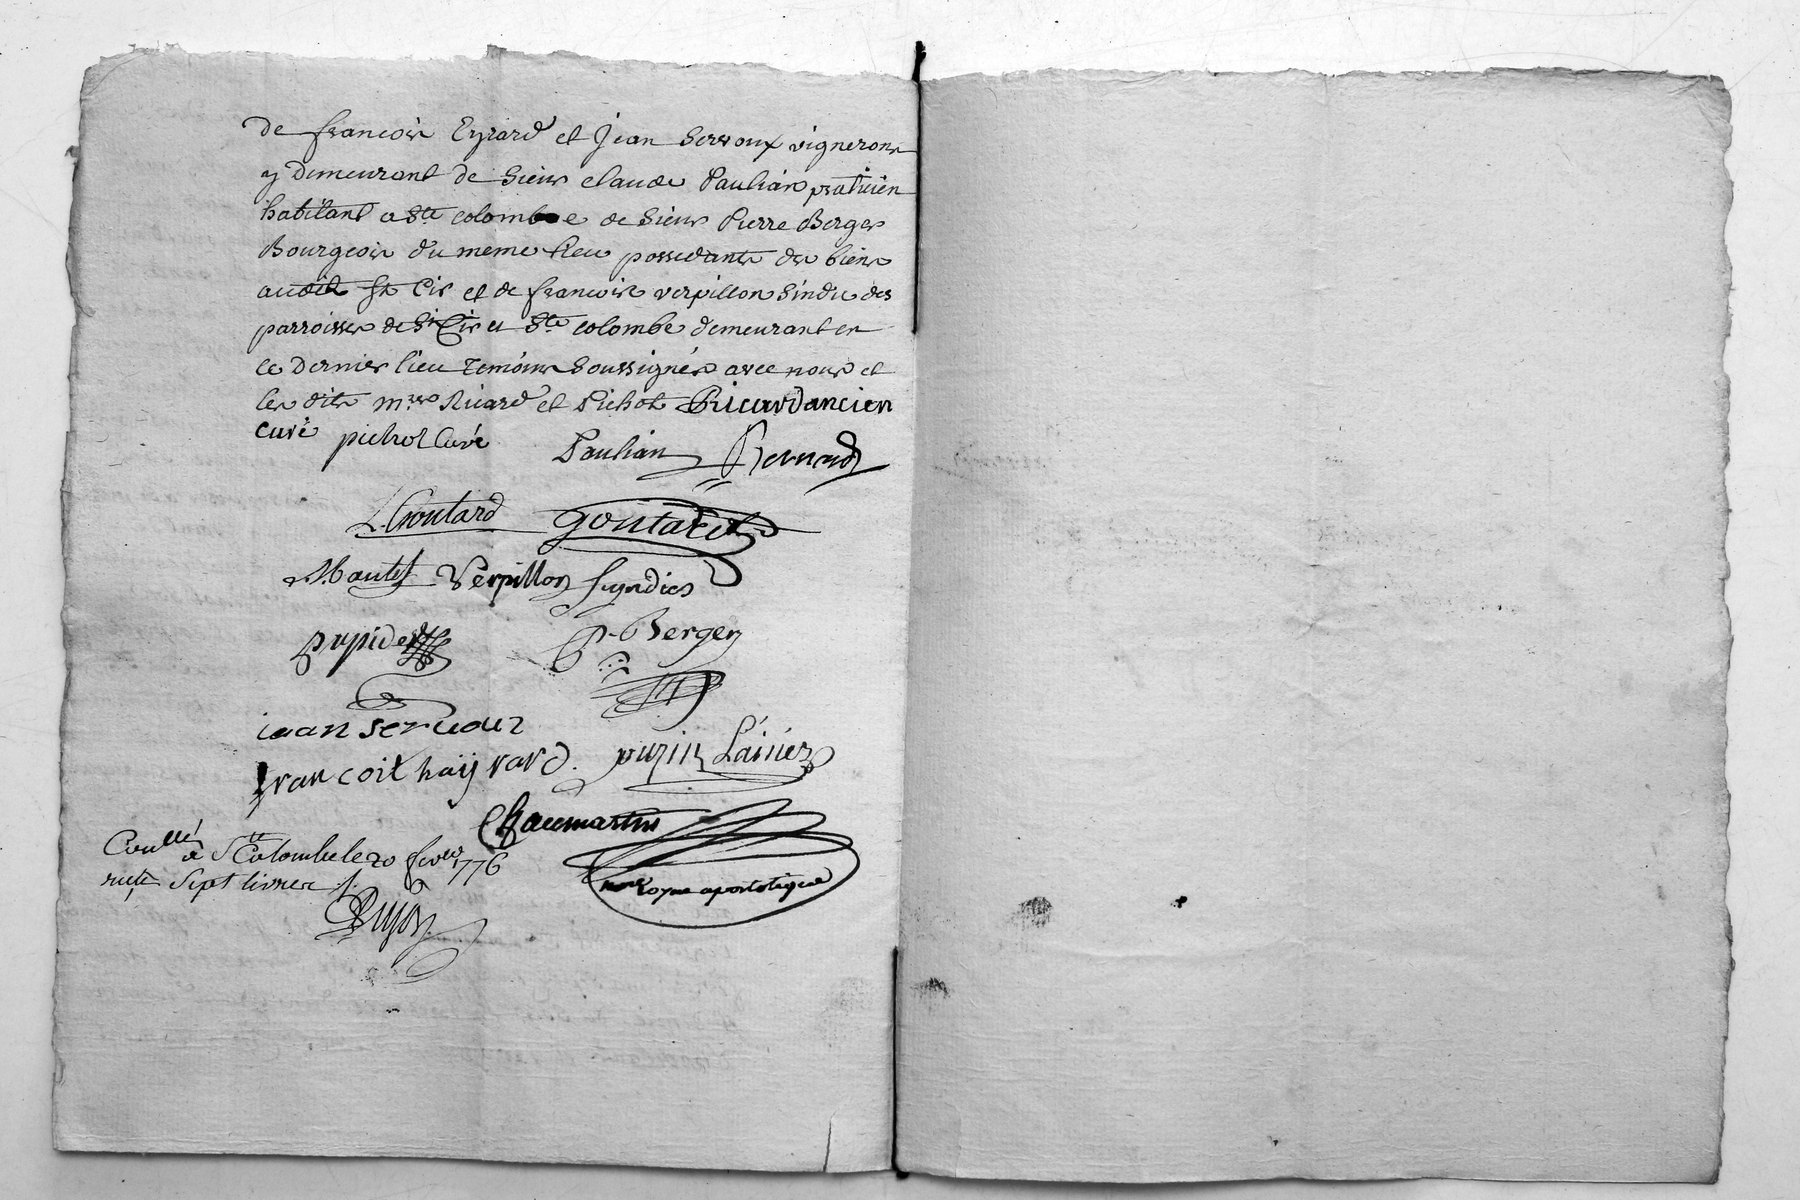 de francois Eyrard et Jean Servoux vignerons
y demeurant de Sieur claude Paulian praticien
habitant a Ste colombe de Sieur Pierre Berger
Bourgeois du meme lieu possedants des biens
audit St Cir et de francois verpillon Sindic des
parroisses de St Cir et Ste colombe demeurant en
ce dernier lieu temoins Soussignés avec nous et
les dits mres Ricard et Pichot Ricard ancien
curé pichot Curé Paulian Bernard
Goutard goutaret
Verpillon syndics
P. Berger
jean serueus
francois hayrard. puzin Lainez
Chaumartin
Conllé
a Ste Colombe le 20 fevrer 1776
Sept livres
nore Royal apostolique